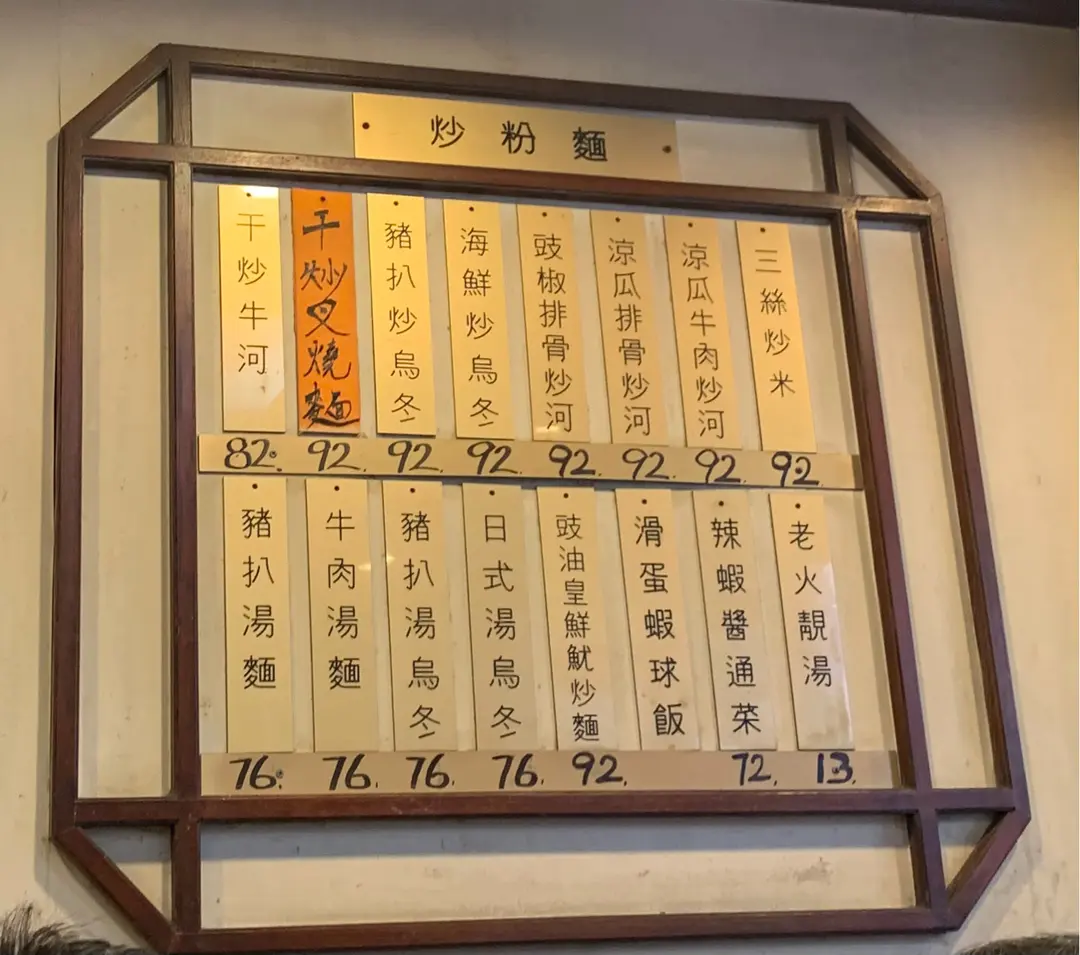 炒粉麵
干炒牛河
干炒叉燒麵
豬扒炒烏冬
海鮮炒烏冬
豉椒排骨炒河
涼瓜排骨炒河
涼瓜牛肉炒河
三絲炒米
82. 92. 92. 92. 92. 92. 92. 92.
豬扒湯麵
牛肉湯麵
豬扒湯烏冬
日式湯烏冬
豉油皇鮮魷炒麵
滑蛋蝦球飯
辣蝦醬通菜
老火靚湯
76. 76. 76. 76. 92. 72. 13.